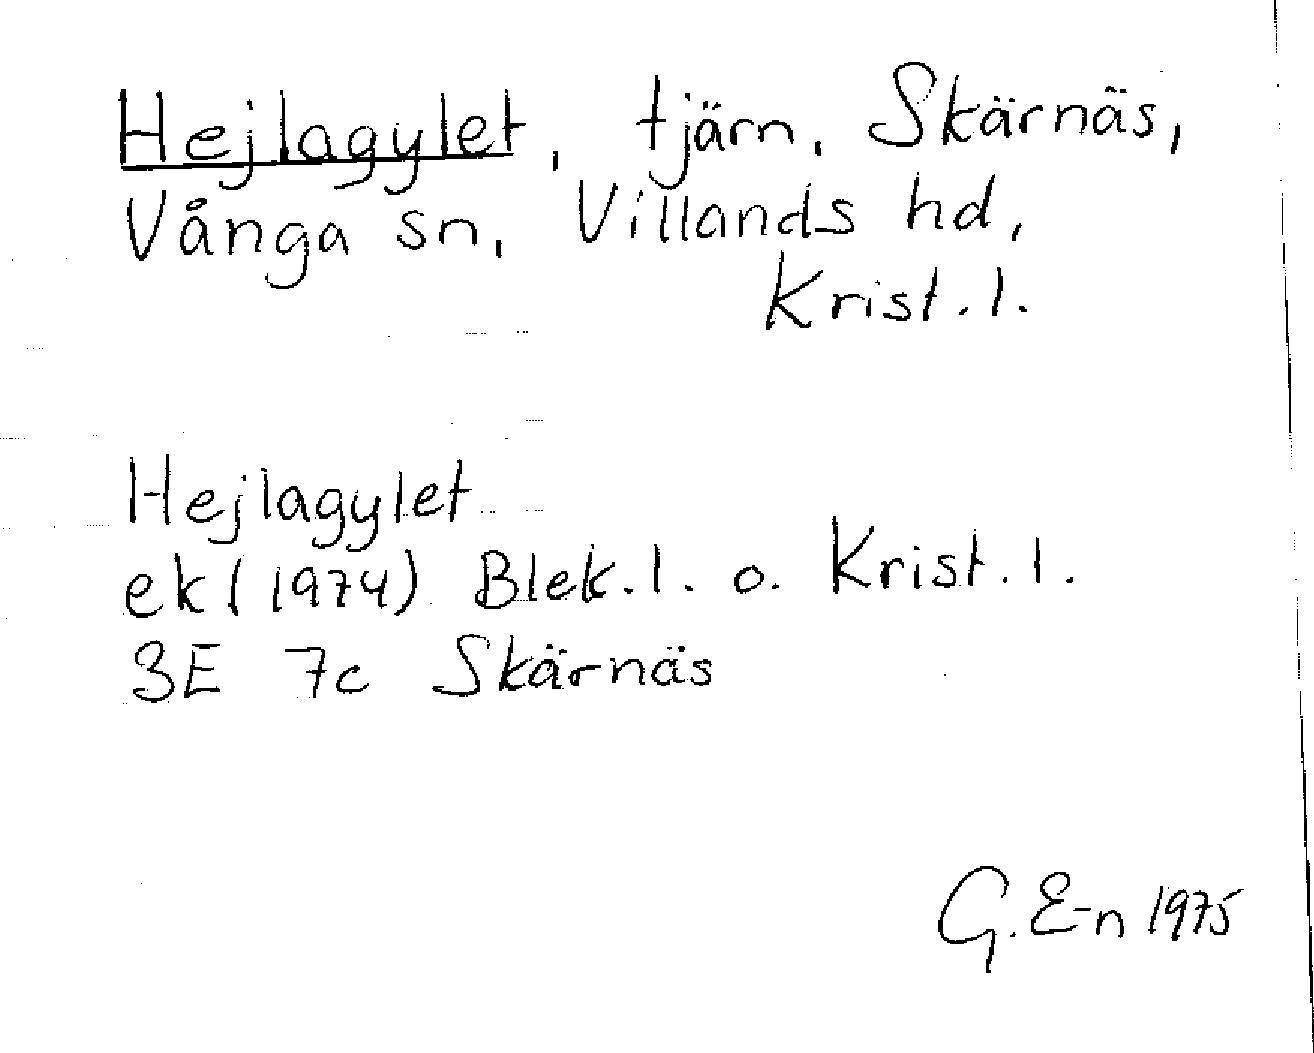 Hejlagylet, tjärn, Skärnäs,
Vånga sn, Villands hd,
Krist.l.
Hejlagylet
ek (1974) Blek.l. o. Krist.l.
3E 7c Skärnäs
G.E-n 1975